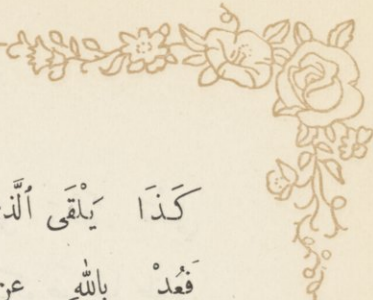 كَذَا يَلْقَى ٱلَّذ
فَعُدْ بِاللّٰهِ عن